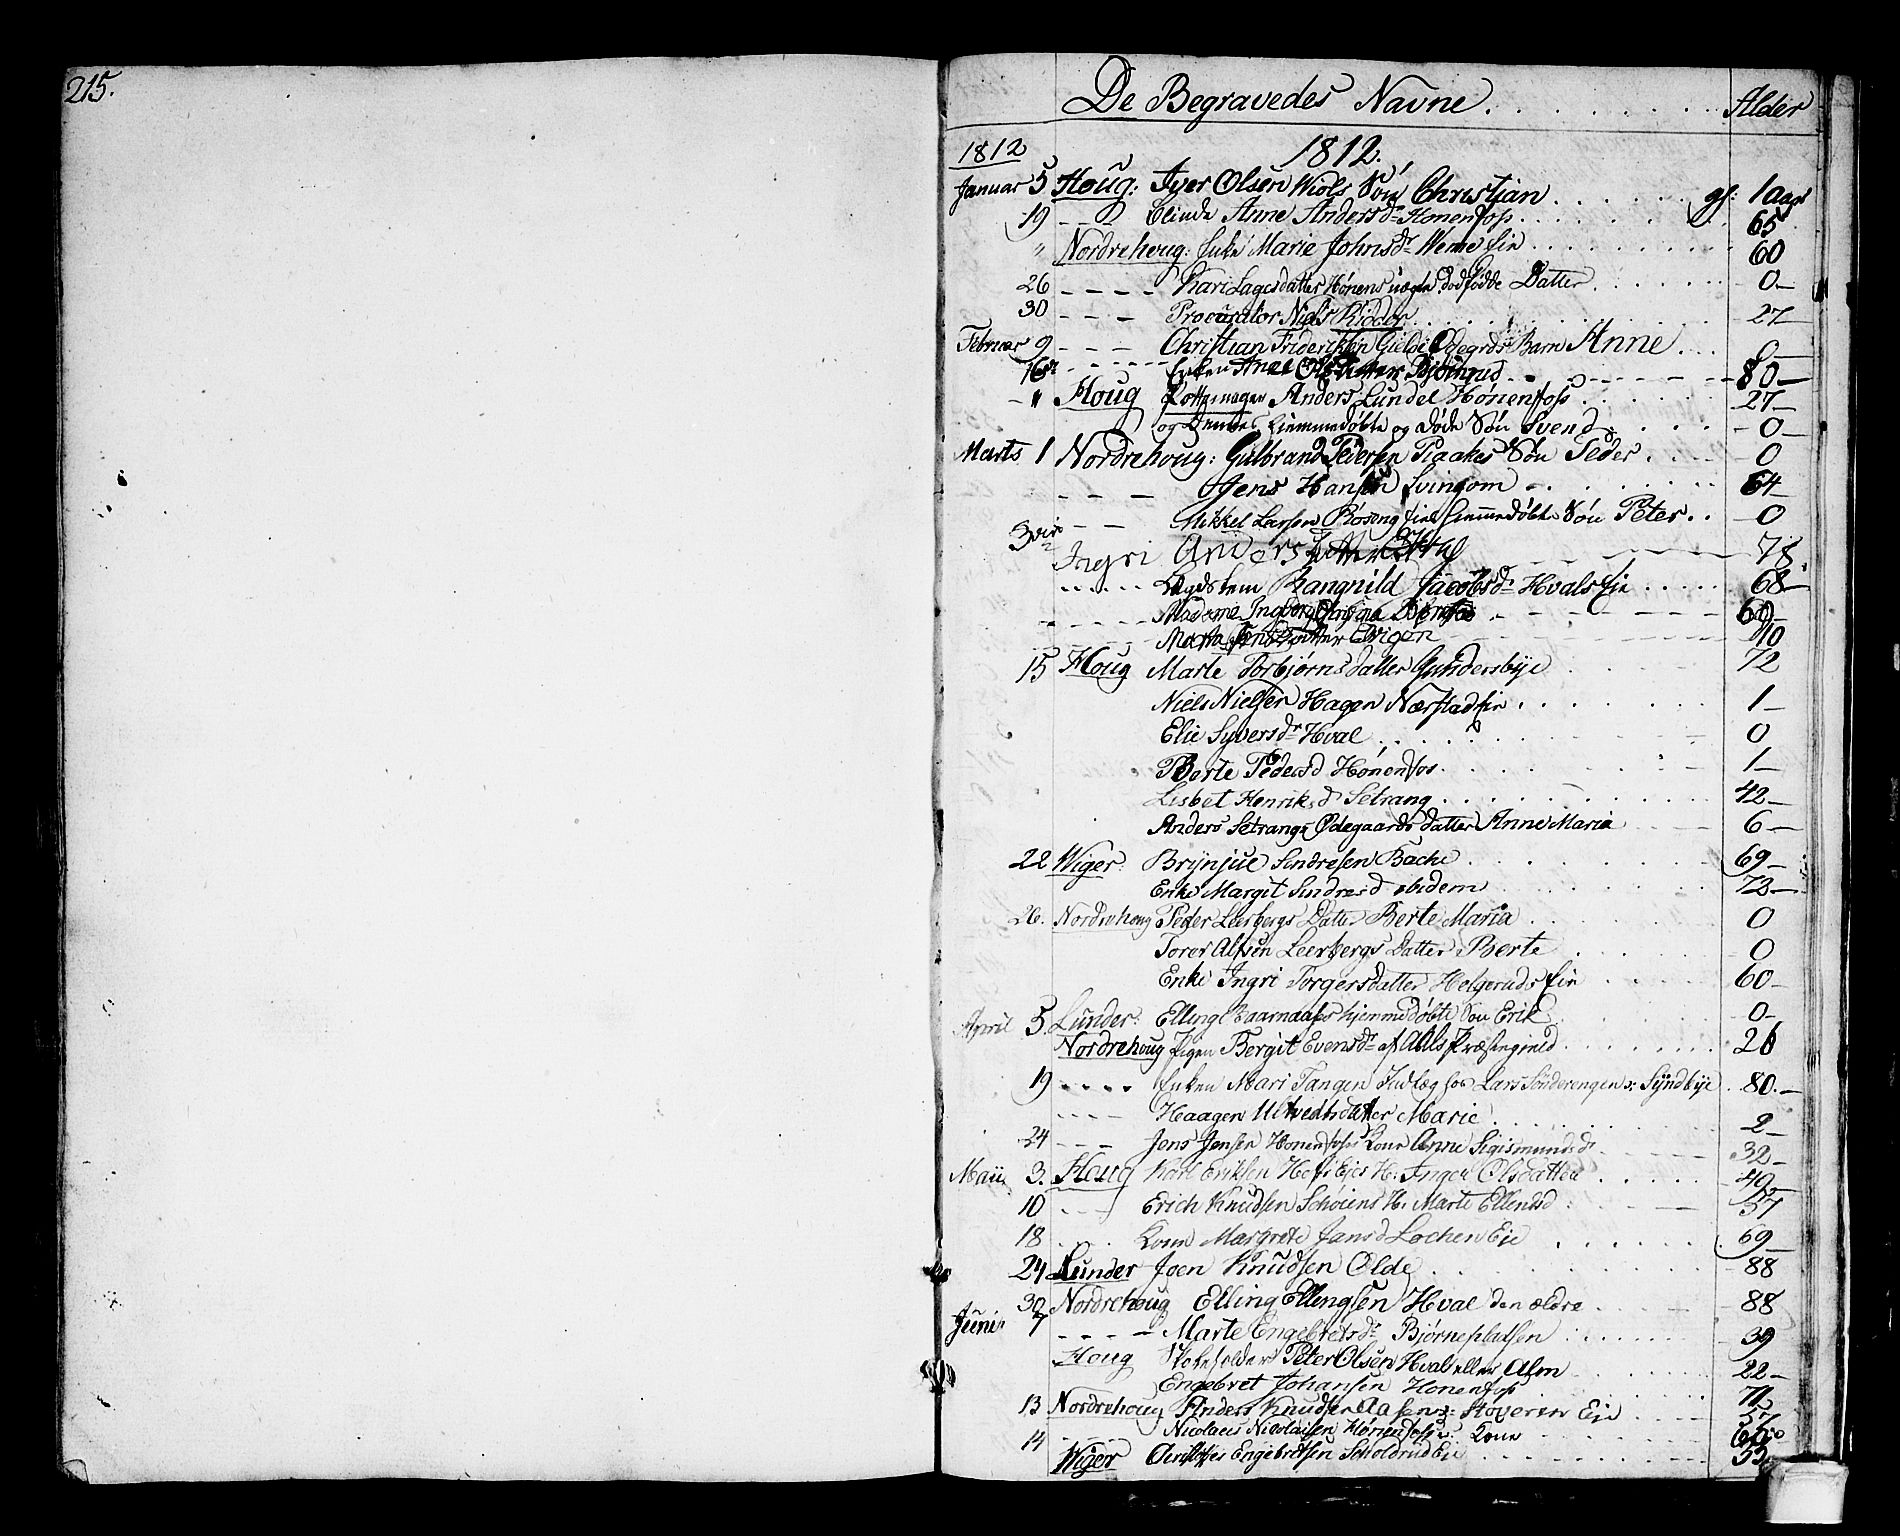 215.
De Begravedes Navne . . . . . . . Alder
1812 1812.
Januar 5 Houg: Iver Olsen Wiols Søn Christjan . . . . . gl: 1 aar
19 - - - blinde Anne Andersdr Hønenfoss . . . . . 65
" Nordrehoug: Enke Marie Johnsdr Weme Eie . . . . . 60
26 - - - - Kari Lagesdatter Hønens uægte dødfødde Datter . . . . 0 -
30 - - - Procurator Niels Riddør . . . . . 27 -
Februar 9 - - - Christian Frideriksen Gielde Ødegrds Barn Anne . . . 0 -
16 - - - - Enken Ane Bjørnrud . . . . 80 -
- " Houg Pottemager Anders Lundel Hønenfoss . . . . 27 -
og Dennes hiemmedøbte og døde Søn Svend . . . . 0 -
Marts 1 Nordrehoug: Gulbrand Pedersen Raakes Søn Peder . . . . 0
- - - Jens Hansen Svingom - . . . . . 64 -
- - - Mikkel Larsen Røseng Eies hiemmedøbte Søn Peter . . 0
Ingri Andersdatter . . . 78.
- - - - - Lægdslem Rangnild Jacobsdr Hvals Eie . . . . 68 -
- - - - - Madame Ingborg . - - - - 60 -
Marte Jensdatter 40
15 Houg Marte Torbjørnsdatter Gundersbye . . . . 72
Niels Nielsen Hagen Nærstad Eie . . . . . 1 -
Elie Syversdr Hval . . . . . 0
Berte Pedersd Hønenfos . . . . . 1 -
Lisbet Henriksd Setrang . . . . . 42 -
Anders Setrangs Ødegaards datter Anne Maria . . . 6 -
22 Wiger: Brynjul Sendresen Bache . . . . . 69 -
Enke Margit Sindresd ibidem . . . . . 73 -
26. Nordrehoug Peder Leerbergs Datter Berte Maria . . . . 0
Torer Alfsen Leerbergs Datter Berte . . . . 0
Enke Ingri Torgersdatter Helgeruds Eie . . . . 60 -
April 5. Lunder: Elling Baarnaases hjemmedøbte Søn Erik . . . . 0 -
Nordrehoug Pigen Bergit Evensdr af Aals Præstegield . . . . 26
19 - - - - Enken Mari Tangen Indlæg hos Lars Sønderengen v: Syndbye . 80. -
- - - - Haagen Ultvedts datter Marie . . . . 2 -
24 - - - Jens Jensen Hønenfoss Kone Anne Sigismundsd . . . 32 -
Maii 3. Houg Karl Eriksen Hofs Ejes H. Inger Olsdatter . . . . 40 -
10 - - - Erich Knudsen Schøiens H. Marte Ellendsd . . . . 57
18 . . . . Kone Margrete Jansd Lochen Eie . . . . 69 -
24 Lunder Joen Knudsen Olde . . . . . 88
30 Nordrehoug Elling Ellingsen Hval den ældre . . . . 88
Juni 7 - - - - Marte Engebretsdr Bjørnepladsen . . . . 39
Houg Skoleholder Peter Olsen Hval eller Alm . . . . 22 -
Engebret Johansen Hønenfoss . . . .
13 Nordrehoug Anders Knudsen Aasen v: Stoveren Eie . . . .
14 - - - - Nicolaus Nicolaisen Hønenfoss Kone . . . .
Wiger Engebretsen Scholdrud Eie . . . . 53